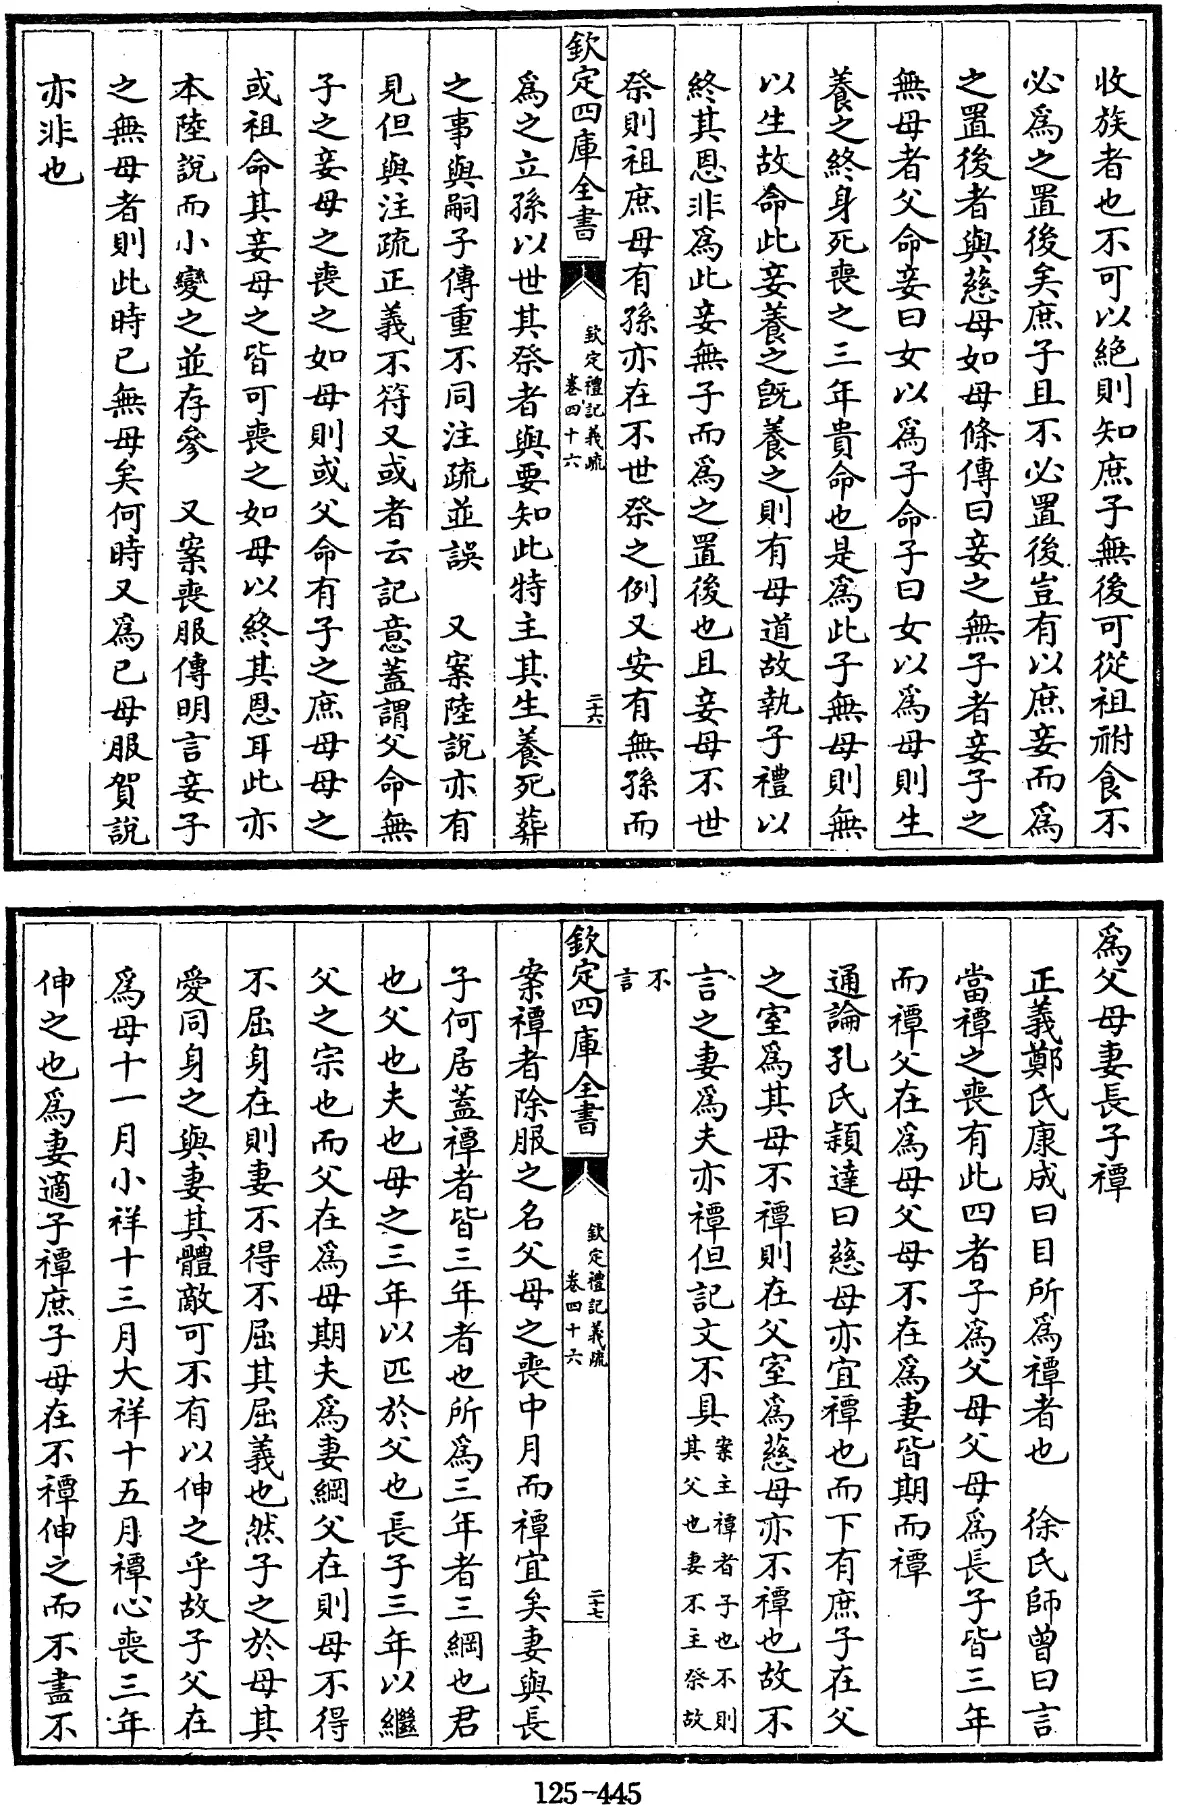 收族者也不可以絶則知庶子無後可從祖祔食不
必爲之置後矣庶子且不必置後豈有以庶妾而爲
之置後者與慈母如母條傳曰妾之無子者妾子之
無母者父命妾曰女以爲子命子曰女以爲母則生
養之終身死喪之三年貴命也是爲此子無母則無
以生故命此妾養之旣養之則有母道故執子禮以
終其恩非爲此妾無子而爲之置後也且妾母不世
祭則祖庶母有孫亦在不世祭之例又安有無孫而
欽定四庫全書
欽定禮記義疏
卷四十六
二十六
爲之立孫以世其祭者與要知此特主其生養死葬
之事與嗣子傳重不同注疏並誤 又案陸說亦有
見但與注疏正義不符又或者云記意蓋謂父命無
子之妾母之喪之如母則或父命有子之庶母母之
或祖命其妾母之皆可喪之如母以終其恩耳此亦
本陸說而小變之並存參 又案喪服傳明言妾子
之無母者則此時已無母矣何時又爲已母服賀說
亦非也
爲父母妻長子禫
正義鄭氏康成曰目所爲禫者也 徐氏師曾曰言
當禫之喪有此四者子爲父母父母爲長子皆三年
而禫父在爲母父母不在爲妻皆期而禫
通論孔氏穎達曰慈母亦宜禫也而下有庶子在父
之室爲其母不禫則在父室爲慈母亦不禫也故不
言之妻爲夫亦禫但記文不具案主禫者子也不則
其父也妻不主祭故
不
言
欽定四庫全書
欽定禮記義疏
卷四十六
二十七
案禫者除服之名父母之喪中月而禫宜矣妻與長
子何居蓋禫者皆三年者也所爲三年者三綱也君
也父也夫也母之三年以匹於父也長子三年以繼
父之宗也而父在爲母期夫爲妻綱父在則母不得
不屈身在則妻不得不屈其屈義也然子之於母其
愛同身之與妻其體敵可不有以伸之乎故子父在
爲母十一月小祥十三月大祥十五月禫心喪三年
伸之也爲妻適子禫庶子母在不禫伸之而不盡不
125-445